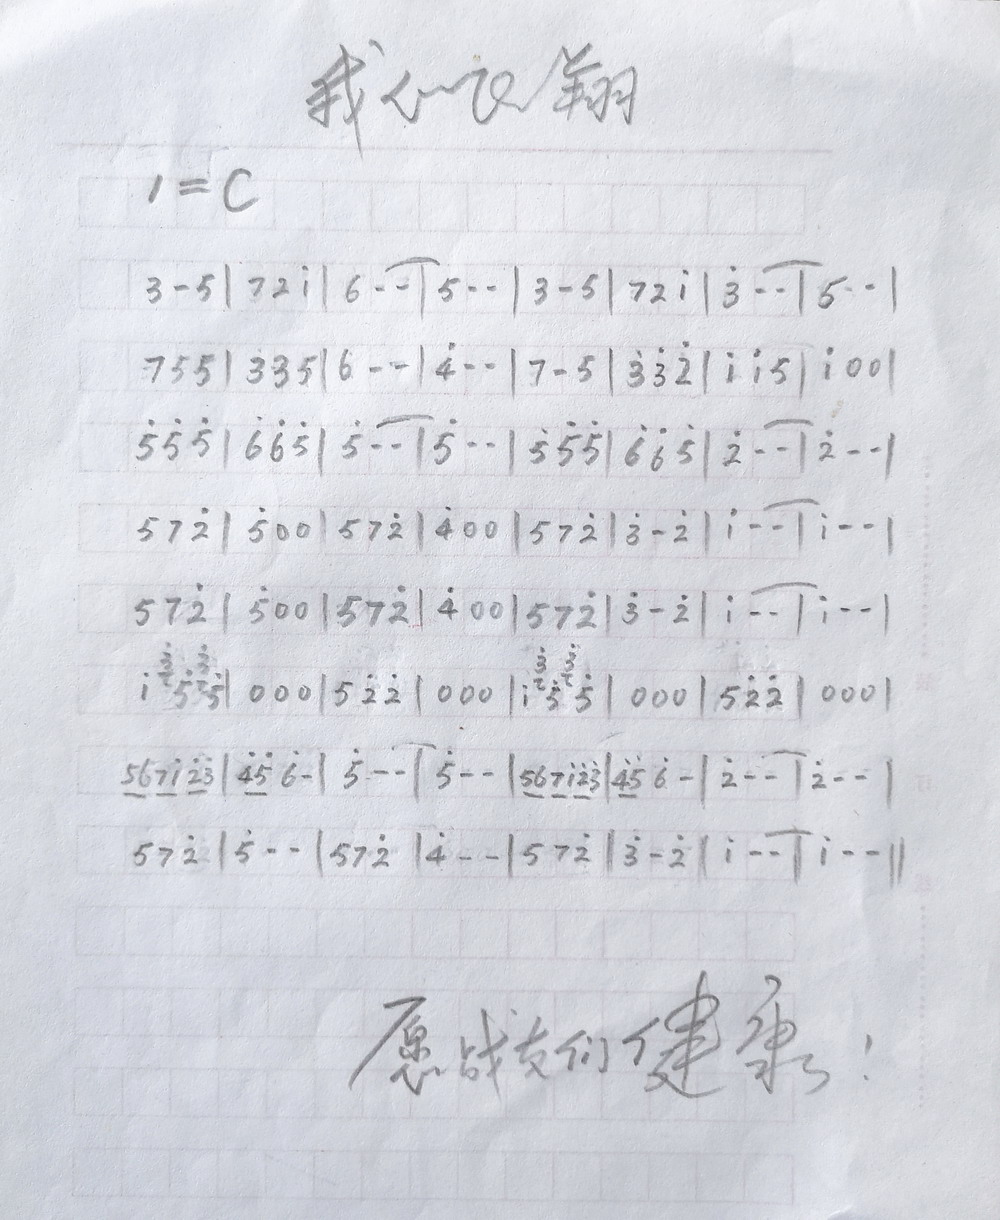 我心飞翔
1=C
3-5|72i|6--|5--|3-5|72i|3̇--|5--|
755|335|6--|4̇--|7-5|3̇3̇2̇|i i5|i00|
5̇5̇5̇|6̇6̇5̇|5̇--|5̇--|5̇5̇5̇|6̇6̇5̇|2̇--|2̇--|
572̇|5̇00|572̇|4̇00|572̇|3̇-2̇|i--|i--|
572̇|5̇00|572̇|4̇00|572̇|3̇-2̇|i--|i--|
i 3̇5̇3̇5̇|000|52̇2̇|000|i 3̇5̇3̇5̇|000|52̇2̇|000|
567i2̇3̇|4̇5̇6̇-|5̇--|5̇--|567i2̇3̇|4̇5̇6̇-|2̇--|2̇--|
572̇|5̇--|572̇|4̇--|572̇|3̇-2̇|i--|i--||
愿战友们健康!